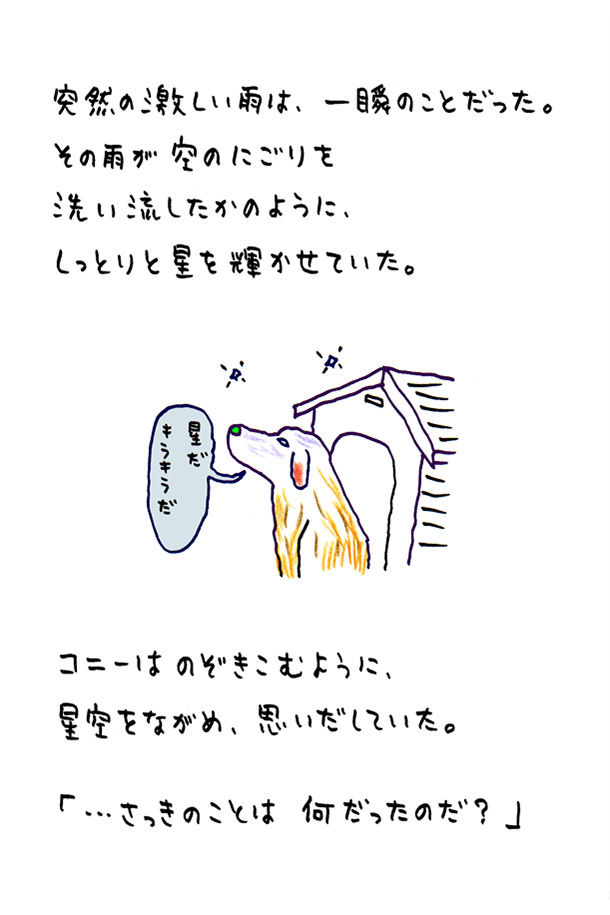 突然の激しい雨は、一瞬のことだった。
その雨が 空のにごりを
洗い流したかのように、
しっとりと星を輝かせていた。
星だ
キラキラだ
コニーは のぞきこむように、
星空をながめ、思いだしていた。
「…さっきのことは 何だったのだ？」